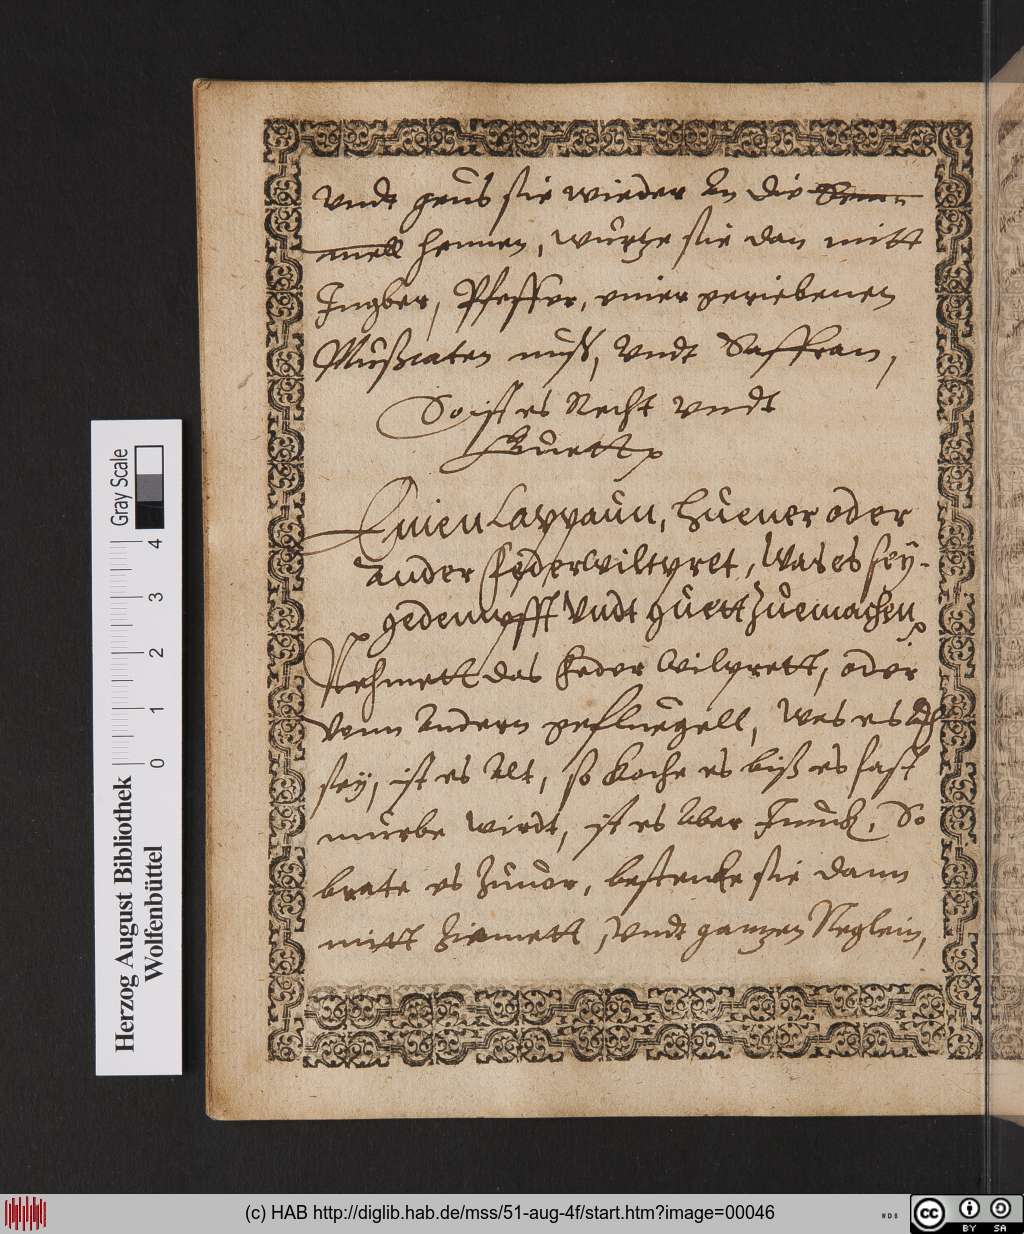 Vndt geus sie wieder An die Sem-
mell hennen, würtze sie dan mitt
Ingber, Pfeffer, einer geriebenen
Mußcaten nuß, Vndt Saffran,
So ist es Recht vndt
Guett
Einen Cappaun, hüener oder
Ander federwiltpret, Was es sey
gedempfft Vndt guett Zuemachen
Nehmett das feder Wilprett, oder
Vonn Andern gefluegell, Was es
sey, ist es Alt, so koche es biß es fast
mürbe wirdt, ist es Aber Junck, So
brate es Zuuor, bestecke sie dann
mitt Zimmett, Vndt gantzen Neglein,
Herzog August Bibliothek
Wolfenbüttel
0 1 2 3 4
Gray Scale
(c) HAB http://diglib.hab.de/mss/51-aug-4f/start.htm?image=00046
WDB
cc BY SA